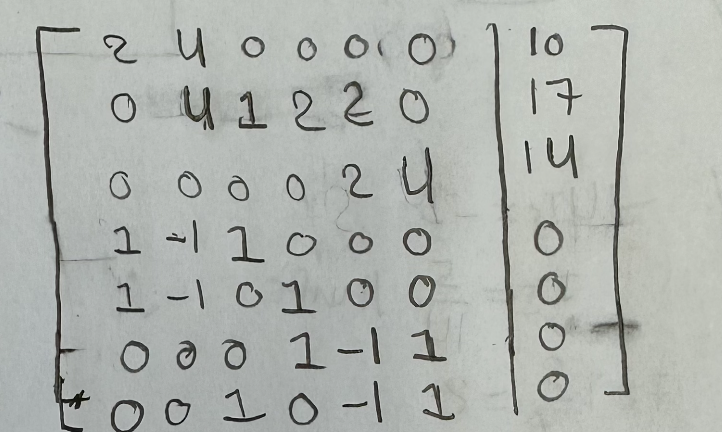 2 4 0 0 0 0 10
0 4 1 2 2 0 17
0 0 0 0 2 4 14
1 -1 1 0 0 0 0
1 -1 0 1 0 0 0
0 0 0 1 -1 1 0
0 0 1 0 -1 1 0